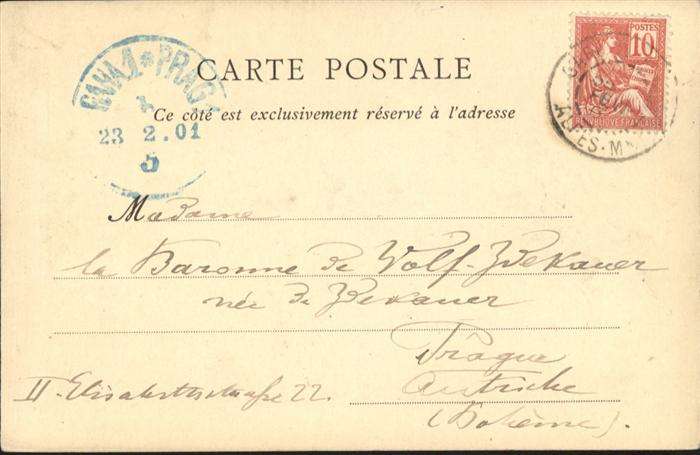 POSTES
10
RÉPUBLIQUE FRANÇAISE
ALPES-M
PRAHA 1 * PRAG
23 2.01
5
CARTE POSTALE
Ce côté est exclusivement réservé à l'adresse
Madame
la Baronne de Wolf-Zdekauer
née de Zdekauer
Prague
II. Elisabethstraße 22.
Autriche
(Bohême).